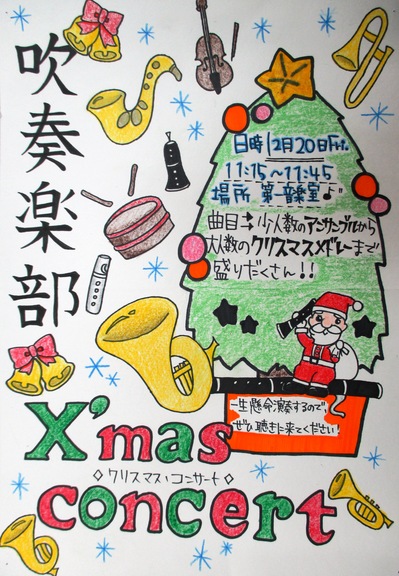 吹奏楽部
日時 12月20日Fri.
11:15〜11:45
場所 第一音楽室♪
曲目→少人数のアンサンブルから
大人数のクリスマスメドレーまで
盛りだくさん!!
一生懸命演奏するので、
ぜひ聴きに来てください!
X'mas
◇クリスマス・コンサート◇
concert